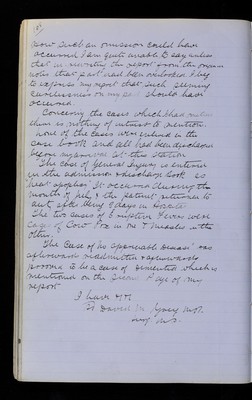 how such an omission could have
occurred I am quite unable to say unless
that in rewriting the report from the rough
notes that part had been overlooked I beg
to express my regret that such seeming
carelessness on my part should have
occurred
Concerning the cases which
there is nothing of interest to mention
none of the cases were entered in the
case book and all had been discharged
before my arrival at this station
The case of General Injury is entered
in the admission & discharge book as
heat apoplexy It occurred during the
month of July & the patient returned to
duty after being 9 days in Hospital
The two cases of Eruptive Fevers were
Cow Pox in one & Measles in the
other.
The Case of no appreciable Disease was
afterwards readmitted & afterwards
proved to be a case of Dementia which is
mentioned on the page of my
report
I have &c